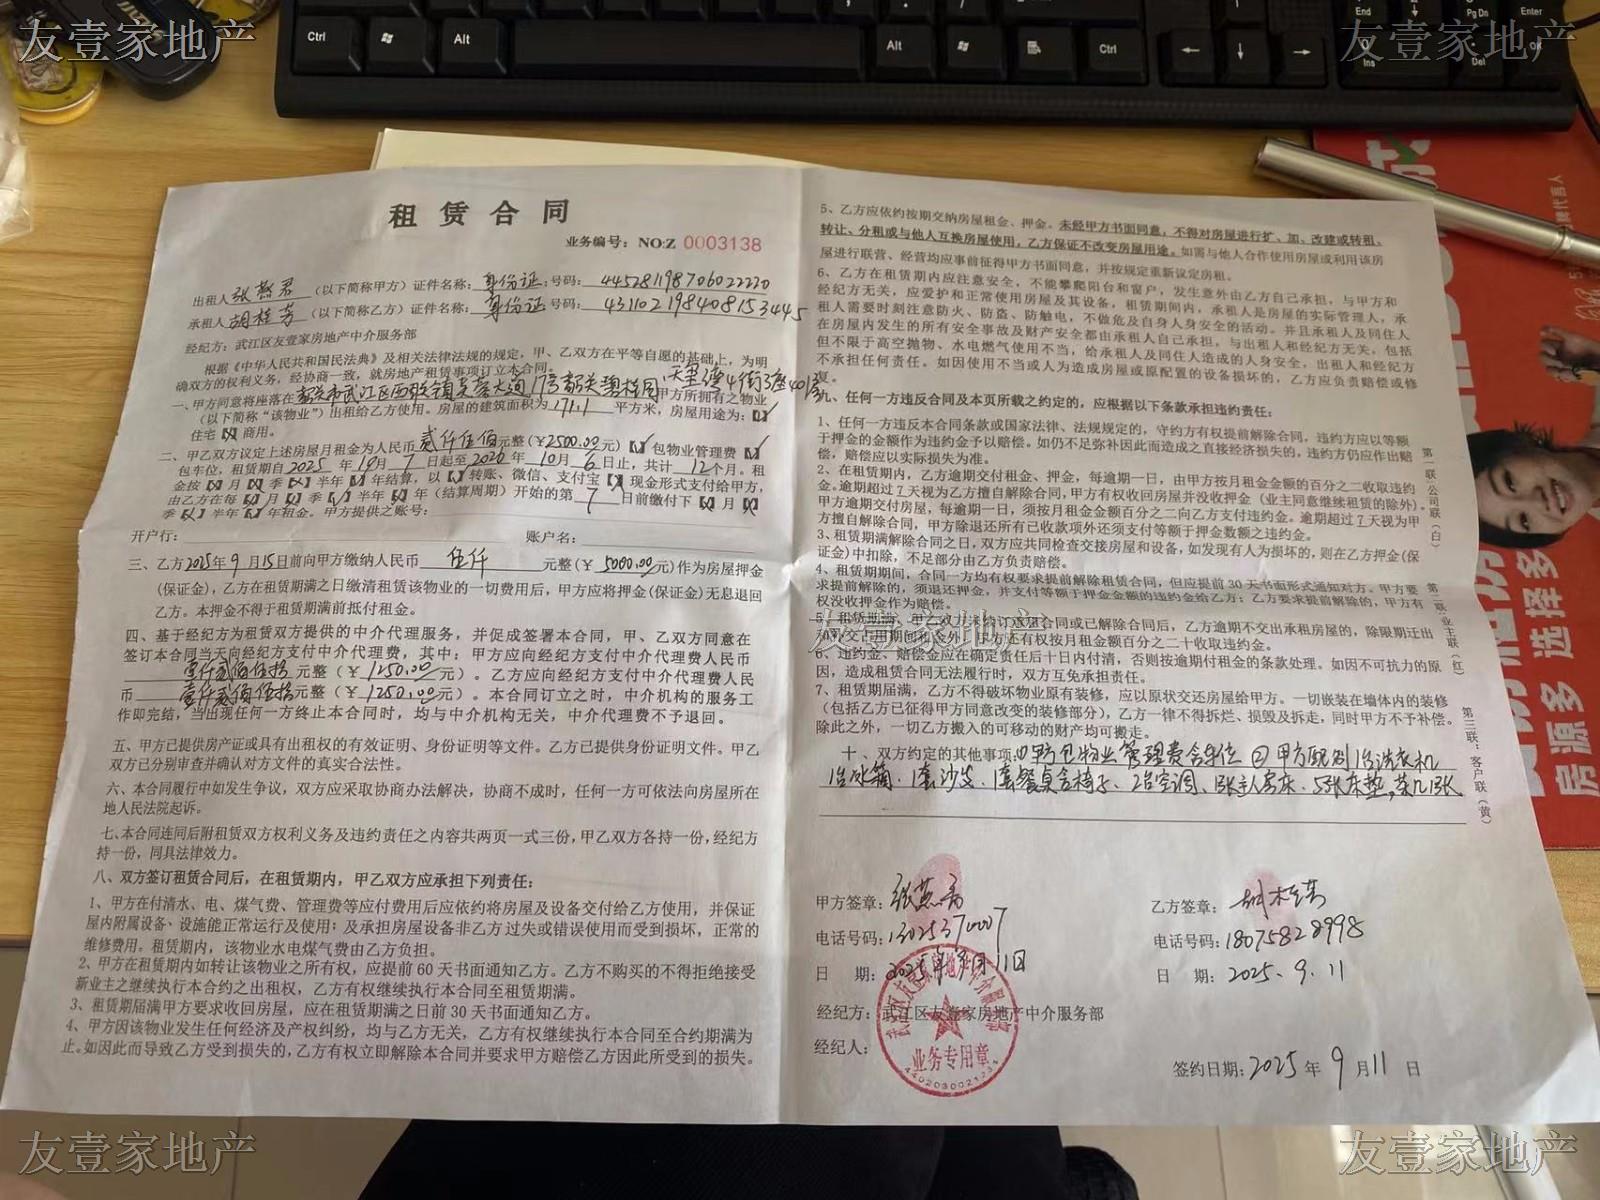 友壹家地产
友壹家地产
Ctrl
Alt
Alt
Ctrl
End
Pg Dn
Enter
Ins
Del
租赁合同
业务编号：NO:Z 0003138
出租人张燕君（以下简称甲方）证件名称：身份证；号码：445281198706022230
承租人胡桂芳（以下简称乙方）证件名称：身份证 号码：431102198408153445
经纪方：武江区友壹家房地产中介服务部
根据《中华人民共和国民法典》及相关法律法规的规定，甲、乙双方在平等自愿的基础上，为明
确双方的权利义务，经协商一致，就房地产租赁事项订立本合同。
一、甲方同意将座落在韶关市武江区西联镇芙蓉大道17号韶关碧桂园，天玺湾4街3座401房甲方所拥有之物业
（以下简称“该物业”）出租给乙方使用。房屋的建筑面积为 171.1 平方米，房屋用途为：【√】
住宅【×】商用。
二、甲乙双方议定上述房屋月租金为人民币贰仟伍佰元整（￥2500.00元）【√】包物业管理费【√】
包车位，租赁期自2025年10月7日起至2026年10月6日止，共计12个月。租
金按【×】月【×】季【×】半年【×】年结算，以【 】转账、微信、支付宝【 】现金形式支付给甲方，
由乙方在每【 】月【 】季【 】半年【 】年（结算周期）开始的第 7 日前缴付下【 】月【 】
季【 】半年【 】年租金。甲方提供之账号：
开户行： 账户名：
三、乙方2025年9月15日前向甲方缴纳人民币 伍仟 元整（￥5000.00元）作为房屋押金
（保证金），乙方在租赁期满之日缴清租赁该物业的一切费用后，甲方应将押金（保证金）无息退回
乙方。本押金不得于租赁期满前抵付租金。
四、基于经纪方为租赁双方提供的中介代理服务，并促成签署本合同，甲、乙双方同意在
签订本合同当天向经纪方支付中介代理费，其中：甲方应向经纪方支付中介代理费人民币
壹仟贰佰伍拾元整（￥1250.00元）。乙方应向经纪方支付中介代理费人民
币 壹仟贰佰伍拾元整（￥1250.00元）。本合同订立之时，中介机构的服务工
作即完结，当出现任何一方终止本合同时，均与中介机构无关，中介代理费不予退回。
五、甲方已提供房产证或具有出租权的有效证明、身份证明等文件。乙方已提供身份证明文件。甲乙
双方已分别审查并确认对方文件的真实合法性。
六、本合同履行中如发生争议，双方应采取协商办法解决，协商不成时，任何一方可依法向房屋所在
地人民法院起诉。
七、本合同连同后附租赁双方权利义务及违约责任之内容共两页一式三份，甲乙双方各持一份，经纪方
持一份，同具法律效力。
八、双方签订租赁合同后，在租赁期内，甲乙双方应承担下列责任：
1、甲方在付清水、电、煤气费、管理费等应付费用后应依约将房屋及设备交付给乙方使用，并保证
屋内附属设备、设施能正常运行及使用；及承担房屋设备非乙方过失或错误使用而受到损坏，正常的
维修费用。租赁期内，该物业水电煤气费由乙方负担。
2、甲方在租赁期内如转让该物业之所有权，应提前60天书面通知乙方。乙方不购买的不得拒绝接受
新业主之继续执行本合约之出租权，乙方有权继续执行本合同至租赁期满。
3、租赁期届满甲方要求收回房屋，应在租赁期满之日前30天书面通知乙方。
4、甲方因该物业发生任何经济及产权纠纷，均与乙方无关，乙方有权继续执行本合同至合约期满为
止。如因此而导致乙方受到损失的，乙方有权立即解除本合同并要求甲方赔偿乙方因此所受到的损失。
5、乙方应依约按期交纳房屋租金、押金。未经甲方书面同意，不得对房屋进行扩、加、改建或转租、
转让、分租或与他人互换房屋使用，乙方保证不改变房屋用途。如需与他人合作使用房屋或利用该房
屋进行联营、经营均应事前征得甲方书面同意，并按规定重新议定房租。
6、乙方在租赁期内应注意安全，不能攀爬阳台和窗户，发生意外由乙方自己承担，与甲方和
经纪方无关，应爱护和正常使用房屋及其设备，租赁期间内，承租人是房屋的实际管理人，承
租人需要时刻注意防火、防盗、防触电，不做危及自身人身安全的活动。并且承租人及同住人
在房屋内发生的所有安全事故及财产安全都由承租人自己承担，与出租人和经纪方无关，包括
但不限于高空抛物、水电燃气使用不当，给承租人及同住人造成的人身安全，出租人和经纪方
不承担任何责任。如因使用不当或人为造成房屋或原配置的设备损坏的，乙方应负责赔偿或修
复。
九、任何一方违反合同及本页所载之约定的，应根据以下条款承担违约责任：
1、任何一方违反本合同条款或国家法律、法规规定的，守约方有权提前解除合同，违约方应以等额
于押金的金额作为违约金予以赔偿。如仍不足弥补因此而造成之直接经济损失的，违约方仍应作出赔
偿，赔偿应以实际损失为准。
2、在租赁期内，乙方逾期交付租金、押金，每逾期一日，由甲方按月租金金额的百分之二收取违约
金。逾期超过7天视为乙方擅自解除合同，甲方有权收回房屋并没收押金（业主同意继续租赁的除外）。
甲方逾期交付房屋，每逾期一日，须按月租金金额百分之二向乙方支付违约金。逾期超过7天视为甲
方擅自解除合同，甲方除退还所有已收款项外还须支付等额于押金数额之违约金。
3、租赁期满解除合同之日，双方应共同检查交接房屋和设备，如发现有人为损坏的，则在乙方押金（保
证金）中扣除，不足部分由乙方负责赔偿。
4、租赁期期间，合同一方均有权要求提前解除租赁合同，但应提前30天书面形式通知对方。甲方要
求提前解除的，须退还押金，并支付等额于押金金额的违约金给乙方；乙方要求提前解除的，甲方有
权没收押金作为赔偿。
5、租赁期满，甲乙双方未续订这租合同或已解除合同后，乙方逾期不交出承租房屋的，除限期迁出
和补交占用期间租金外，甲方还有权按月租金额百分之二十收取违约金。
友壹家地产
6、违约金、赔偿金应在确定责任后十日内付清，否则按逾期付租金的条款处理。如因不可抗力的原
因，造成租赁合同无法履行时，双方互免承担责任。
7、租赁期届满，乙方不得破坏物业原有装修，应以原状交还房屋给甲方。一切嵌装在墙体内的装修
（包括乙方已征得甲方同意改变的装修部分），乙方一律不得拆烂、损毁及拆走，同时甲方不予补偿。
除此之外，一切乙方搬入的可移动的财产均可搬走。
十、双方约定的其他事项：①甲方包物业管理费含车位 ②甲方配别1台洗衣机
1台冰箱、1套沙发、1套餐桌含椅子、2台空调、1张主人房床、5张床垫，茶几1张
第一联：公司联（白）
第二联：业主联（红）
第三联：客户联（黄）
甲方签章：张燕君
电话号码：13025370007
日 期：2025年9月11日
经纪方：武江区友壹家房地产中介服务部
经纪人：
武江区友壹家房地产中介服务部
业务专用章
4402030021234
乙方签章：胡桂芳
电话号码：18075828998
日 期：2025.9.11
签约日期：2025年9月11日
牌代言人
房源多 选择多
友壹家地产
友壹家地产